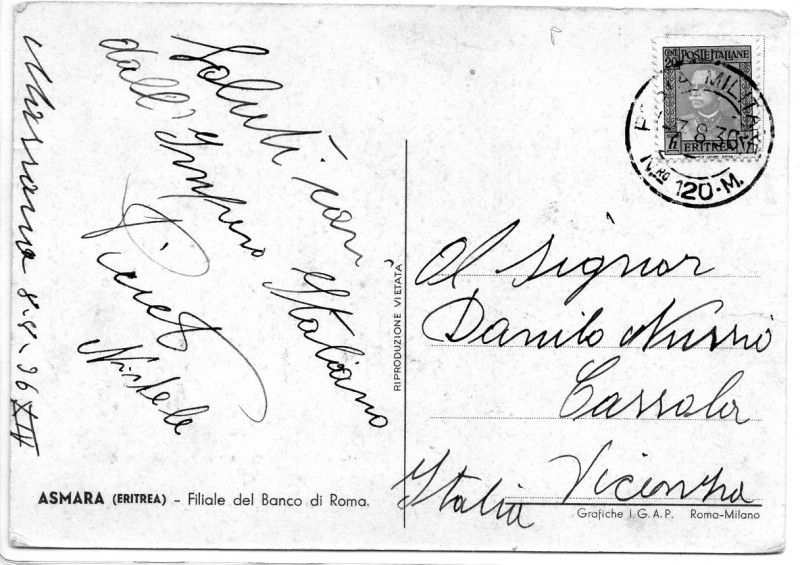 Massaua 8.4.36 XIV
Saluti cari
dall'Impero Italiano
Michele
ASMARA (ERITREA) - Filiale del Banco di Roma.
RIPRODUZIONE VIETATA
POSTE ITALIANE
CENT. 20
ERITREA
POSTA MILITARE
8.36
N.RO 120-M.
Al Signor
Danilo Nussio
Cassola
Vicenza
Italia
Grafiche I.G.A.P. Roma-Milano